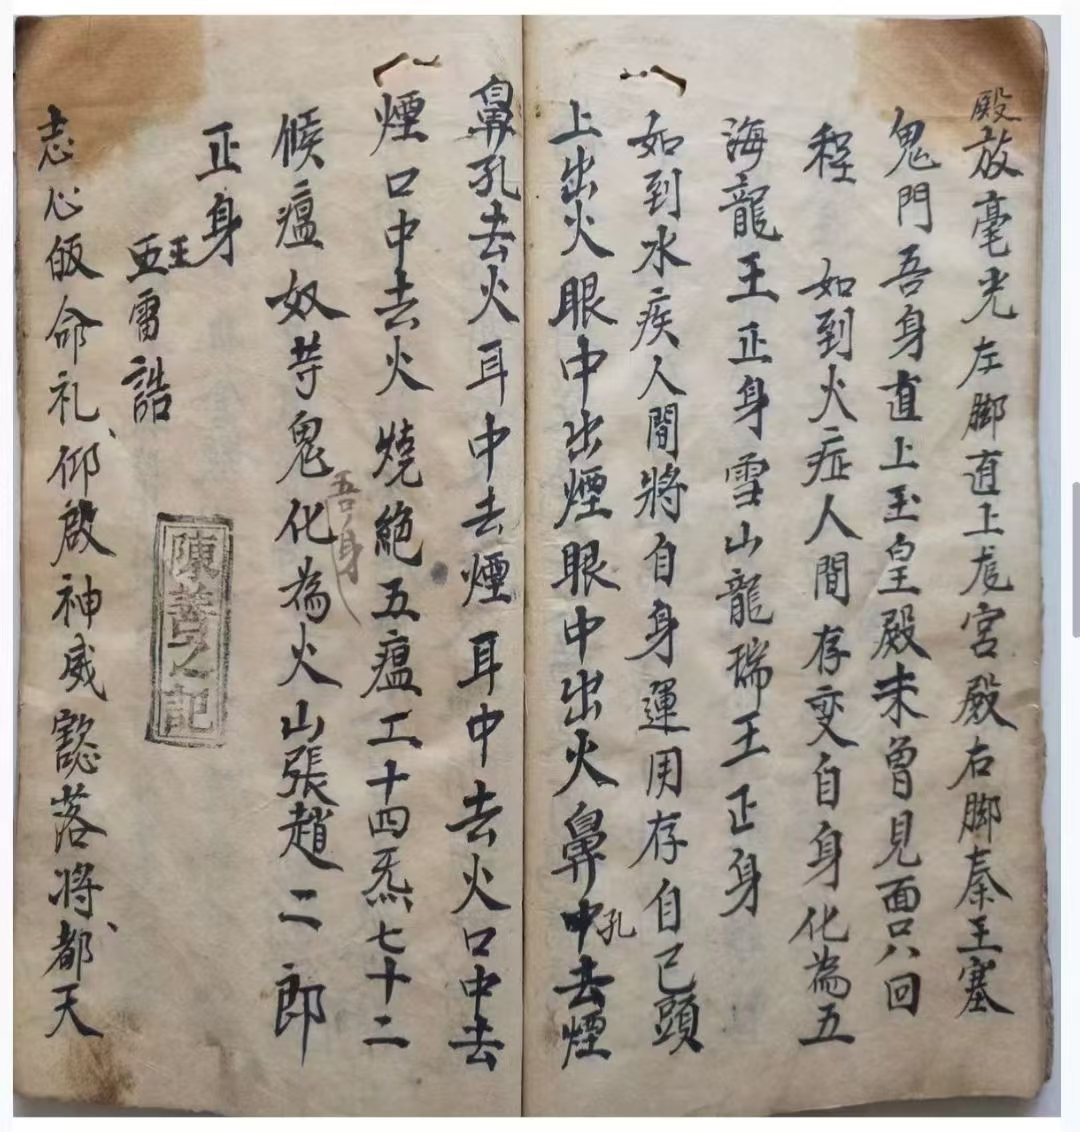 殿放毫光左脚直上尨宮殿右脚秦王塞
鬼門吾身直上玉皇殿未曾見面只回
程 如到火症人間存变自身化為五
海龍王正身雪山龍瑞王正身
如到水疾人間將自身運用存自已頭
上出火眼中出煙眼中出火鼻中孔去煙
鼻孔去火耳中去煙耳中去火口中去
煙口中去火燒絕五瘟工十四炁七十二
候瘟奴芽鬼化為火山張趙二郎
吾身
正身
五王雷誥
陳善之記
志心皈命礼仰啟神威豁落将都天